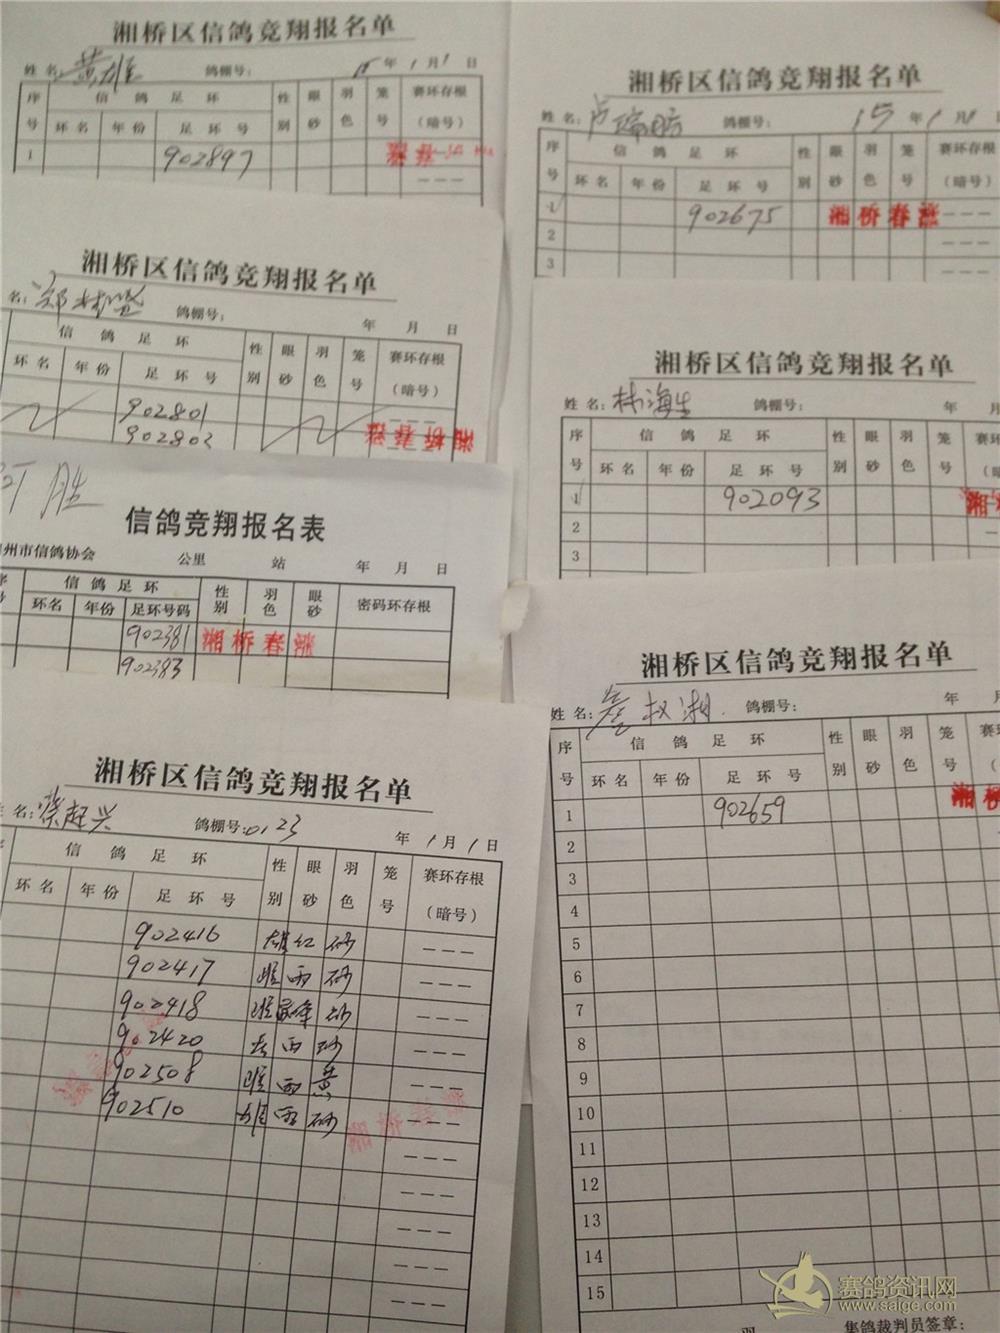 湘桥区信鸽竞翔报名单
姓名: 黄雄 鸽棚号: 15年1月1日
序号 信鸽足环 性别 眼砂 羽色 笼号 赛环存根(暗号)
环名 年份 足环号
1 902897
湘桥区信鸽竞翔报名单
姓名: 鸽棚号: 15年1月1日
序号 信鸽足环 性别 眼砂 羽色 笼号 赛环存根(暗号)
环名 年份 足环号
1 902675 湘桥春 ---
2 ---
3
湘桥区信鸽竞翔报名单
名: 郑 鸽棚号: 年 月 日
信鸽足环 性别 眼砂 羽色 笼号 赛环存根(暗号)
环名 年份 足环号
902801
902802 湘桥春
湘桥区信鸽竞翔报名单
姓名: 林海生 鸽棚号: 年 月
序号 信鸽足环 性别 眼砂 羽色 笼号 赛环
环名 年份 足环号
1 902093 湘
2
3
胜
信鸽竞翔报名表
州市信鸽协会 公里 站 年 月 日
信鸽足环 性别 羽色 眼砂 密码环存根
环名 年份 足环号码
902381 湘桥春
902383
湘桥区信鸽竞翔报名单
姓名: 詹权湘 鸽棚号: 年 月
序号 信鸽足环 性别 眼砂 羽色 笼号 赛环
环名 年份 足环号
1 902659 湘桥
2
3
4
5
6
7
8
9
10
11
12
13
14
15
集鸽裁判员签章:
湘桥区信鸽竞翔报名单
名: 蔡起兴 鸽棚号: 0123 年1月1日
信鸽足环 性别 眼砂 羽色 笼号 赛环存根(暗号)
环名 年份 足环号
902416 雄 红 砂 ---
902417 雌 雨 砂 ---
902418 雌 砂 ---
902420 雨 砂 ---
902508 雌 雨 黄 ---
902510 雄 雨 砂 ---
赛鸽资讯网
www.saige.com